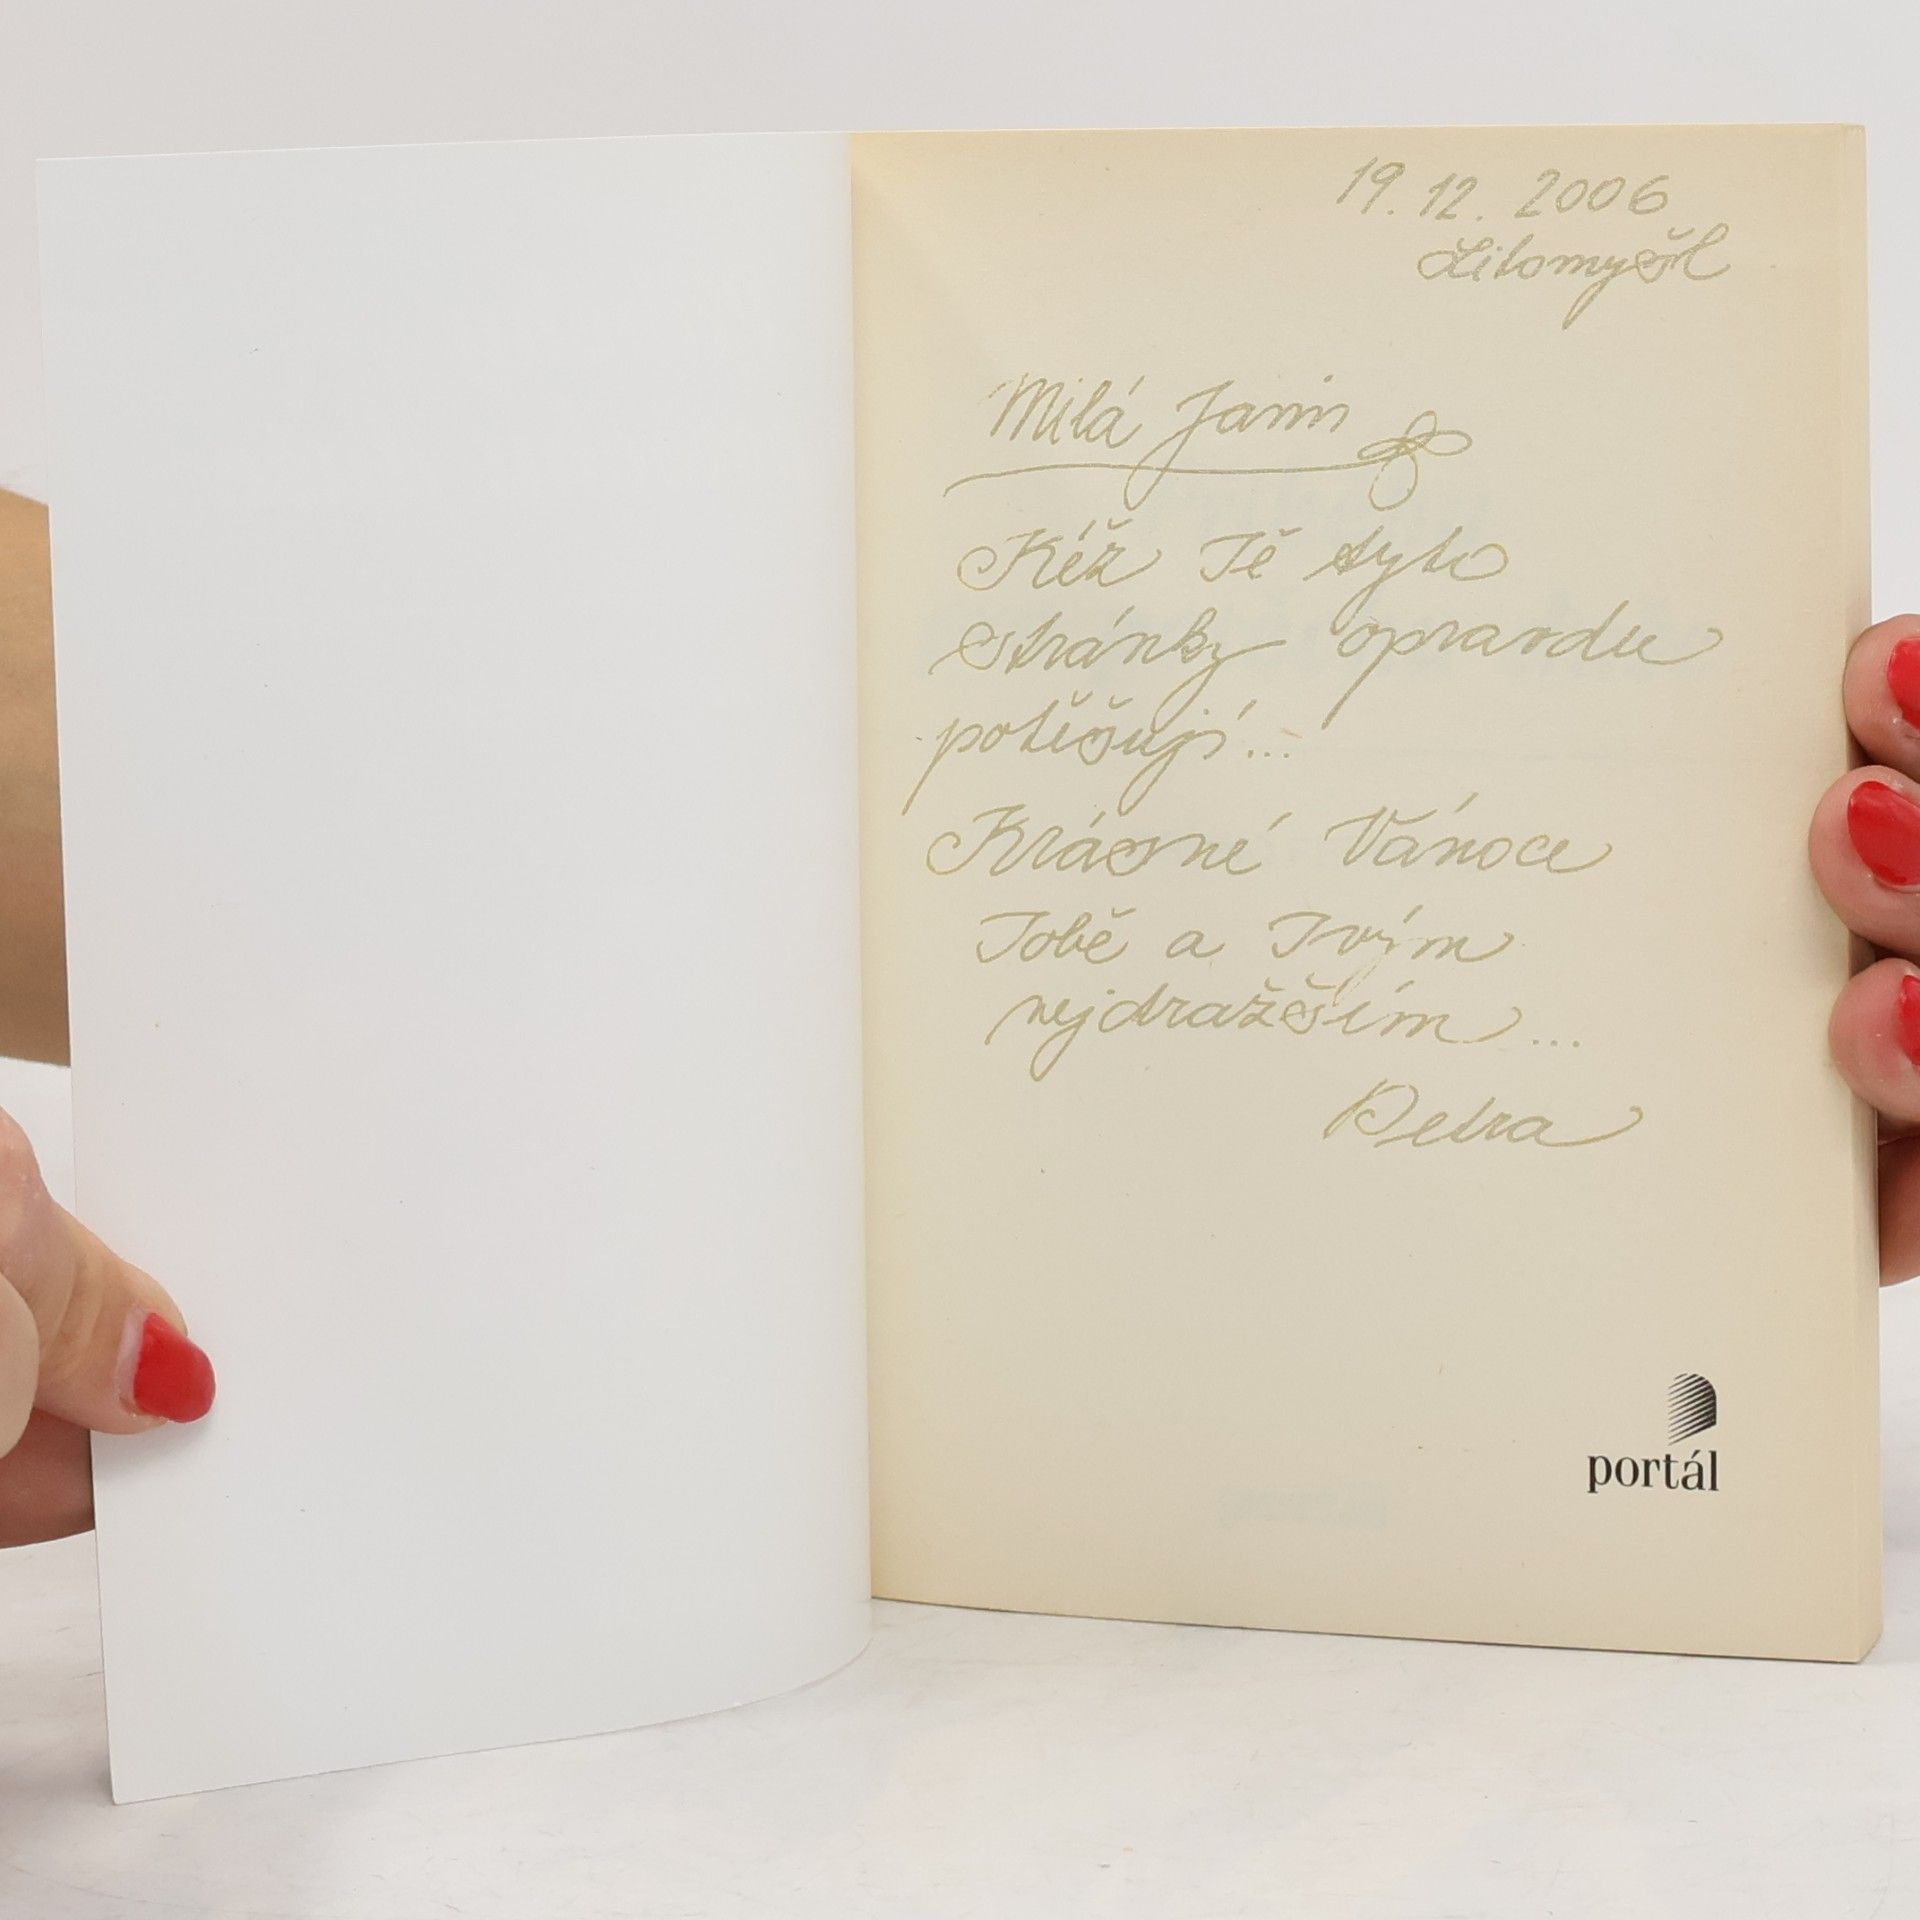 19. 12. 2006
Litomyšl
Milá Jani
Kéž Tě tyto
stránky opravdu
potěšují...
Krásné Vánoce
Tobě a Tvým
nejdražším...
Petra
portál